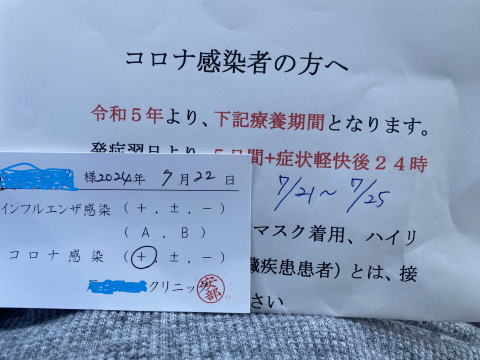 コロナ感染者の方へ
令和5年より、下記療養期間となります。
発症翌日より、5日間+症状軽快後24時
7/21〜7/25
マスク着用、ハイリ
臓疾患患者）とは、接
さい
様2024年 7月22日
インフルエンザ感染（+, ±, −）
（A, B）
コロナ感染（+, ±, −）
クリニック
安部